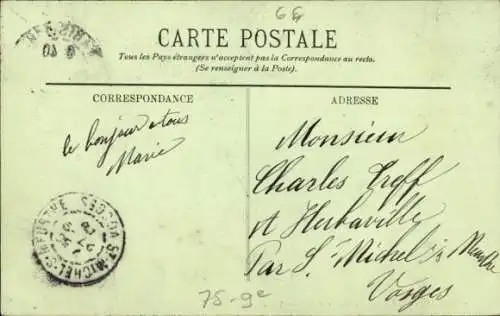 6 &
CARTE POSTALE
Tous les Pays étrangers n'acceptent pas la Correspondance au recto.
(Se renseigner à la Poste).
CORRESPONDANCE
ADRESSE
le bonjour a tous
Marie
Monsieur
Charles
à Herbaville
Par St Michel s/ Meurthe
Vosges
ST-MICHEL-S-MEURTHE VOSGES
75-9e